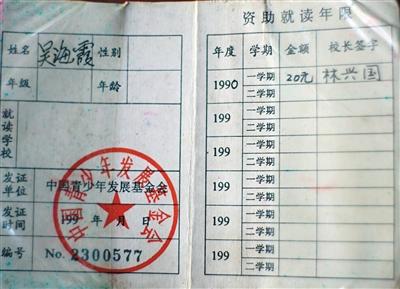 姓名 吴海霞 性别
年级 年龄
就读学校
发证单位 中国青少年发展基金会
发证时间 199 年 月 日
编号 No. 2300577
中国青少年发展基金会
资助就读年限
年度 学期 金额 校长签字
1990 一学期 20元 林兴国
二学期
199 一学期
二学期
199 一学期
二学期
199 一学期
二学期
199 一学期
二学期